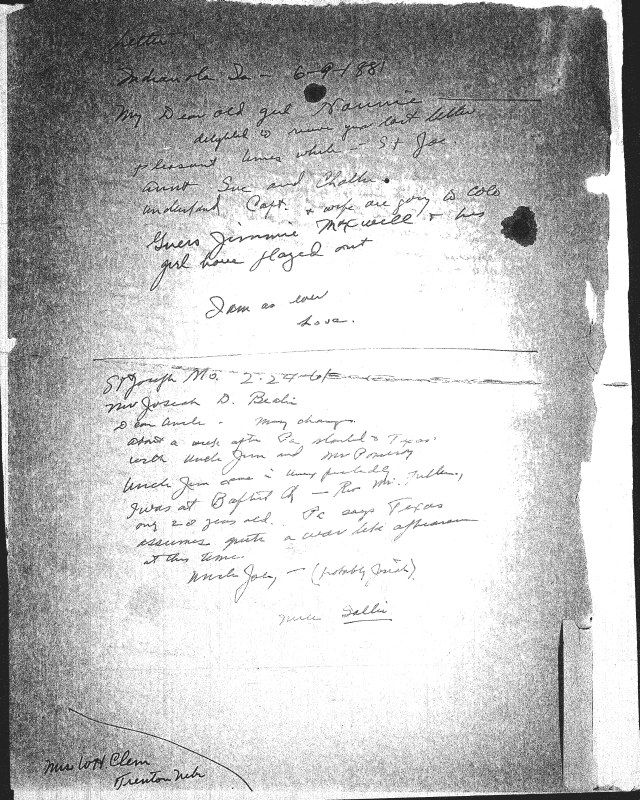 Letter
Indianola Ia - 6-9-1881
My Dear old girl Nannie
delighted to receive your last letter
pleasant times while - St Joe.
Aunt Sue and
understand Capt. & wife are going to Colo
Guess Jimmie Maxwell & his
girl have played out
I am as ever
Love.
St Joseph Mo. 2-24-61
Mr Josiah D.
Dear Uncle - Many changes.
About a week after Pa started to Texas
with Uncle Jim and Mr
Uncle Jim came
I was at Baptist Ch - Rev Mr. Fuller,
only 20 years old. Pa says Texas
assumes quite a war like appearance
at this time.
Uncle Joe, - (probably Josiah)
Niece Sallie
Mrs W H Clem
Trenton Neb